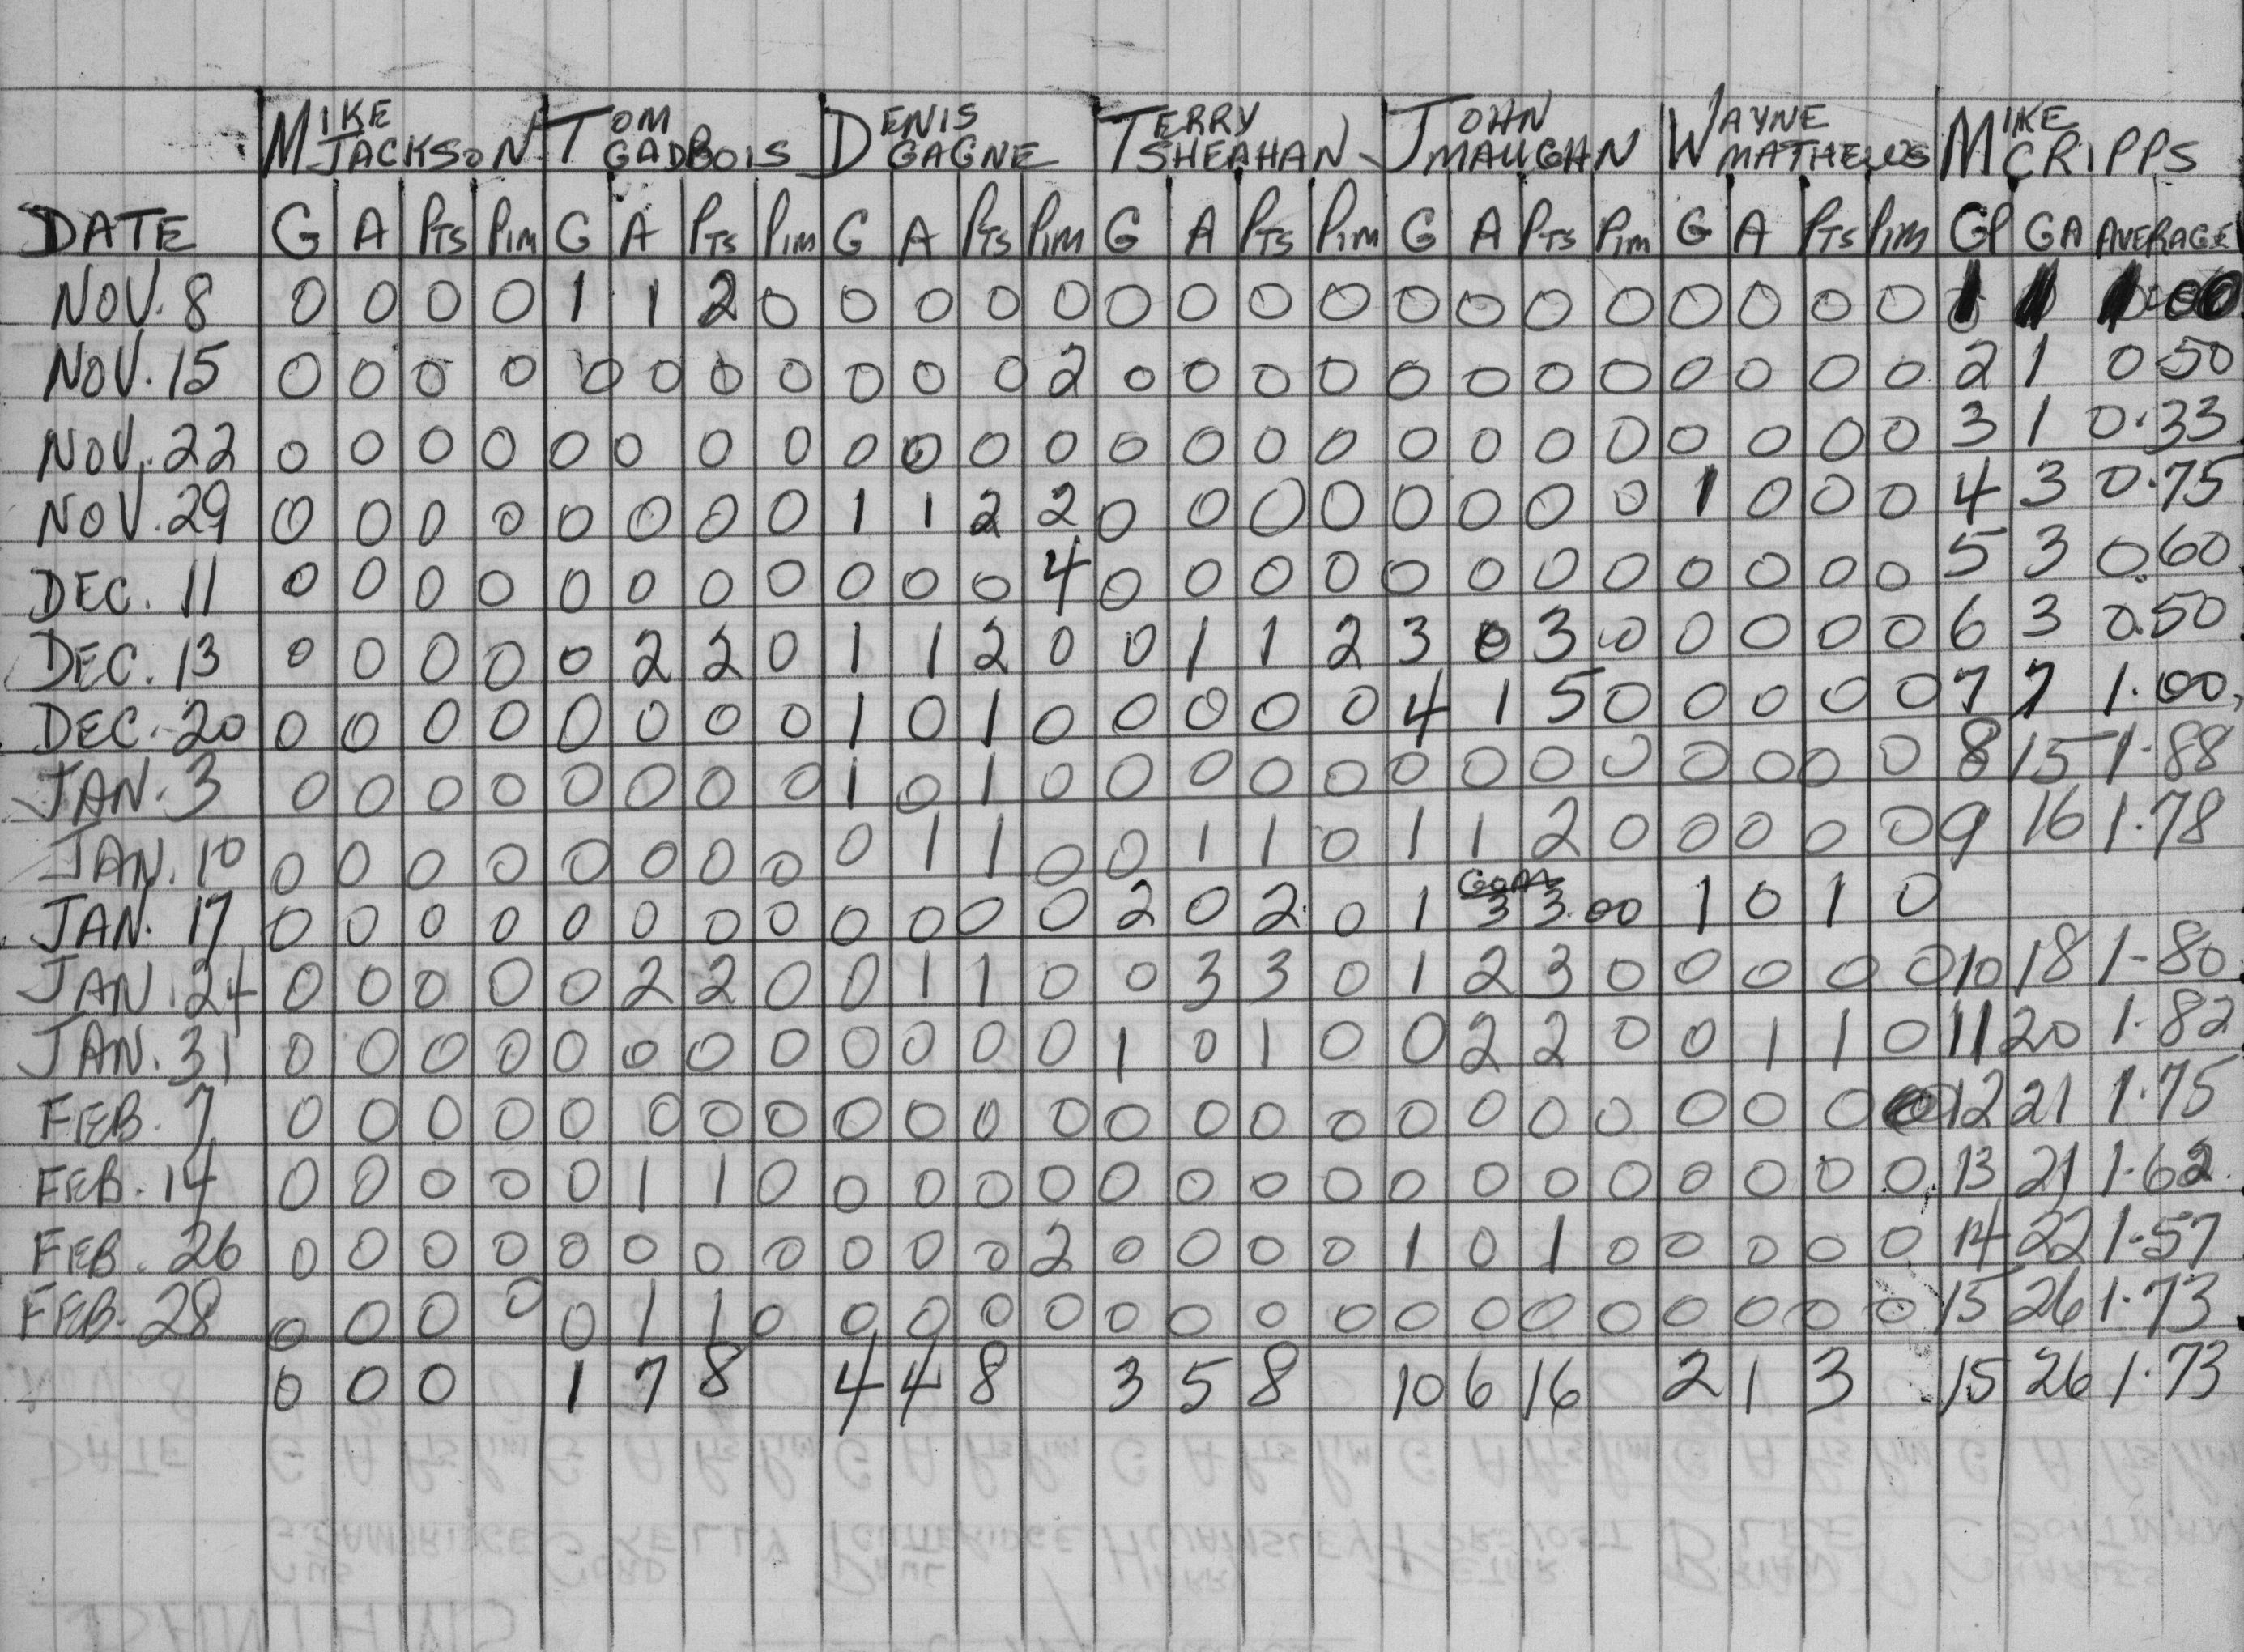 MIKE JACKSON TOM GADBOIS DENIS GAGNE TERRY SHEAHAN JOHN MAUGHAN WAYNE MATHEWS MIKE CRIPPS
DATE G A PTS PIM G A PTS PIM G A PTS PIM G A PTS PIM G A PTS PIM G A PTS PIM GP GA AVERAGE
NOV. 8 0 0 0 0 1 1 2 0 0 0 0 0 0 0 0 0 0 0 0 0 0 0 0 0 1 1 1.00
NOV. 15 0 0 0 0 0 0 0 0 0 0 0 2 0 0 0 0 0 0 0 0 0 0 0 0 2 1 0.50
NOV. 22 0 0 0 0 0 0 0 0 0 0 0 0 0 0 0 0 0 0 0 0 0 0 0 0 3 1 0.33
NOV. 29 0 0 0 0 0 0 0 0 1 1 2 2 0 0 0 0 0 0 0 0 1 0 0 0 4 3 0.75
DEC. 11 0 0 0 0 0 0 0 0 0 0 0 4 0 0 0 0 0 0 0 0 0 0 0 0 5 3 0.60
DEC. 13 0 0 0 0 0 2 2 0 1 1 2 0 0 1 1 2 3 0 3 0 0 0 0 0 6 3 0.50
DEC. 20 0 0 0 0 0 0 0 0 1 0 1 0 0 0 0 0 4 1 5 0 0 0 0 0 7 7 1.00
JAN. 3 0 0 0 0 0 0 0 0 1 0 1 0 0 0 0 0 0 0 0 0 0 0 0 0 8 15 1.88
JAN. 10 0 0 0 0 0 0 0 0 0 1 1 0 0 1 1 0 1 1 2 0 0 0 0 0 9 16 1.78
GOAL
JAN. 17 0 0 0 0 0 0 0 0 0 0 0 0 2 0 2 0 1 3 3.00 1 0 1 0
JAN. 24 0 0 0 0 0 2 2 0 0 1 1 0 0 3 3 0 1 2 3 0 0 0 0 0 10 18 1.80
JAN. 31 0 0 0 0 0 0 0 0 0 0 0 0 1 0 1 0 0 2 2 0 0 1 1 0 11 20 1.82
FEB. 7 0 0 0 0 0 0 0 0 0 0 0 0 0 0 0 0 0 0 0 0 0 0 0 0 12 21 1.75
FEB. 14 0 0 0 0 0 1 1 0 0 0 0 0 0 0 0 0 0 0 0 0 0 0 0 0 13 21 1.62
FEB. 26 0 0 0 0 0 0 0 0 0 0 0 2 0 0 0 0 1 0 1 0 0 0 0 0 14 22 1.57
FEB. 28 0 0 0 0 0 1 1 0 0 0 0 0 0 0 0 0 0 0 0 0 0 0 0 0 15 26 1.73
0 0 0 1 7 8 4 4 8 3 5 8 10 6 16 2 1 3 15 26 1.73